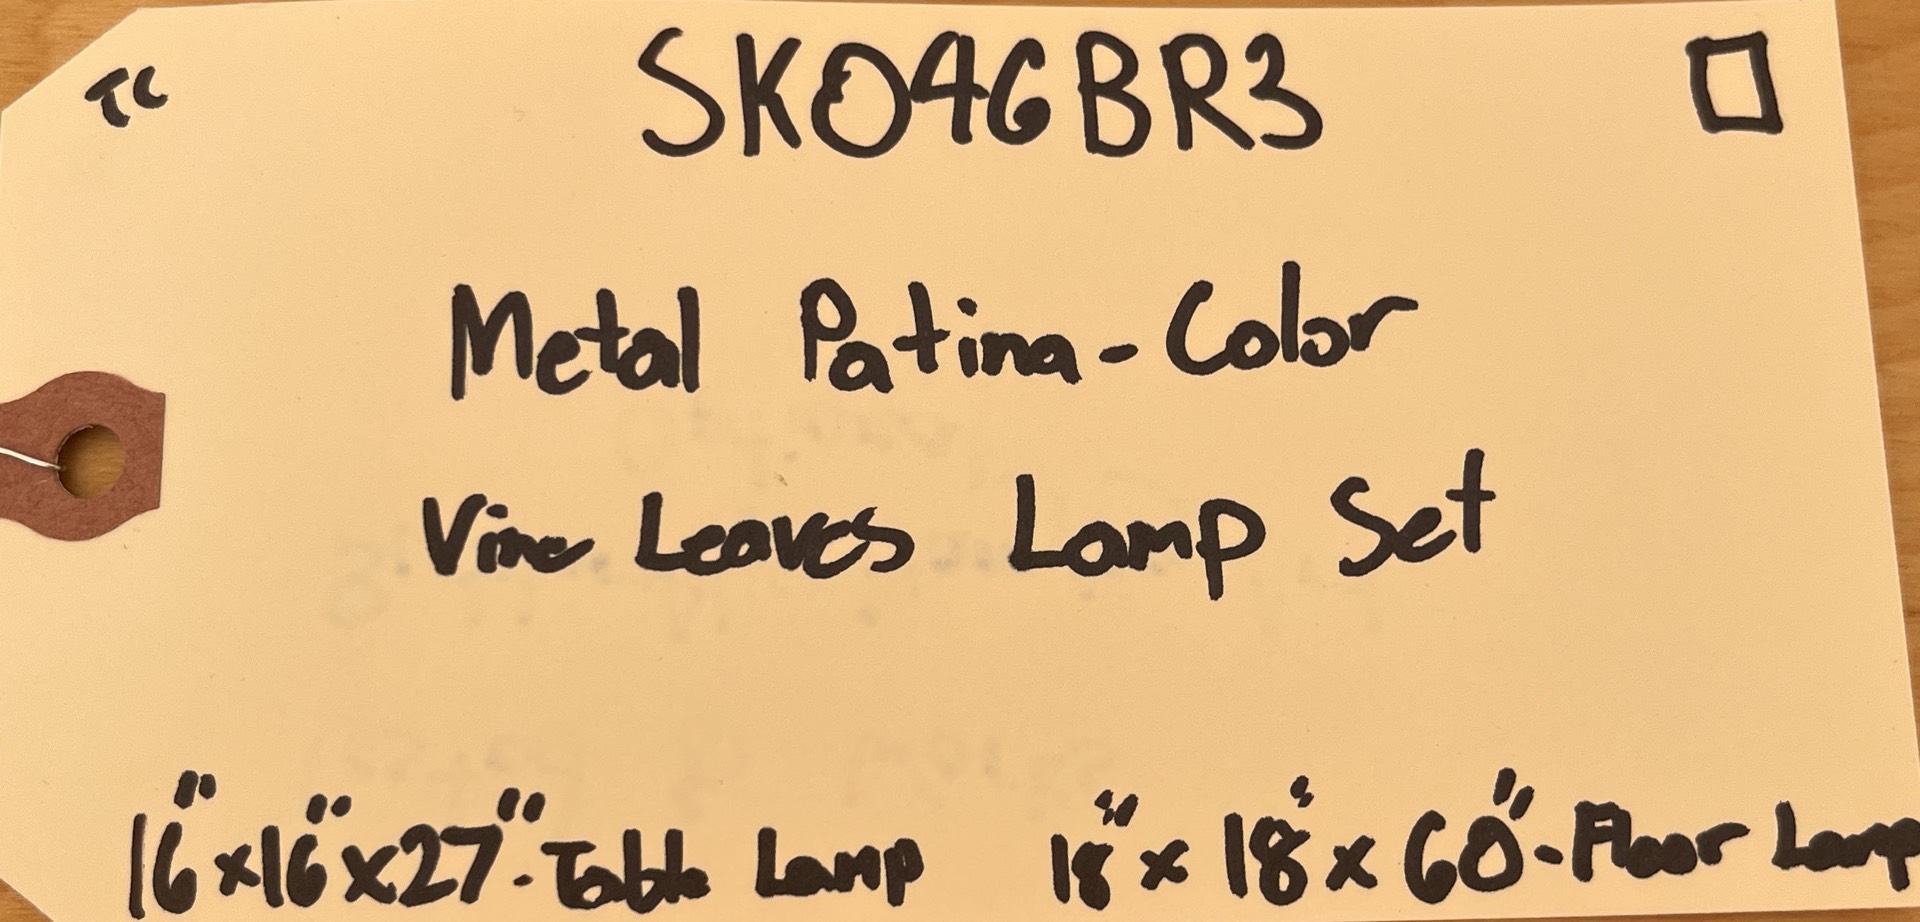 TC
SK046BR3
Metal Patina-Color
Vine Leaves Lamp Set
16"x16"x27"-Table Lamp 18"x18"x60"-Floor Lamp